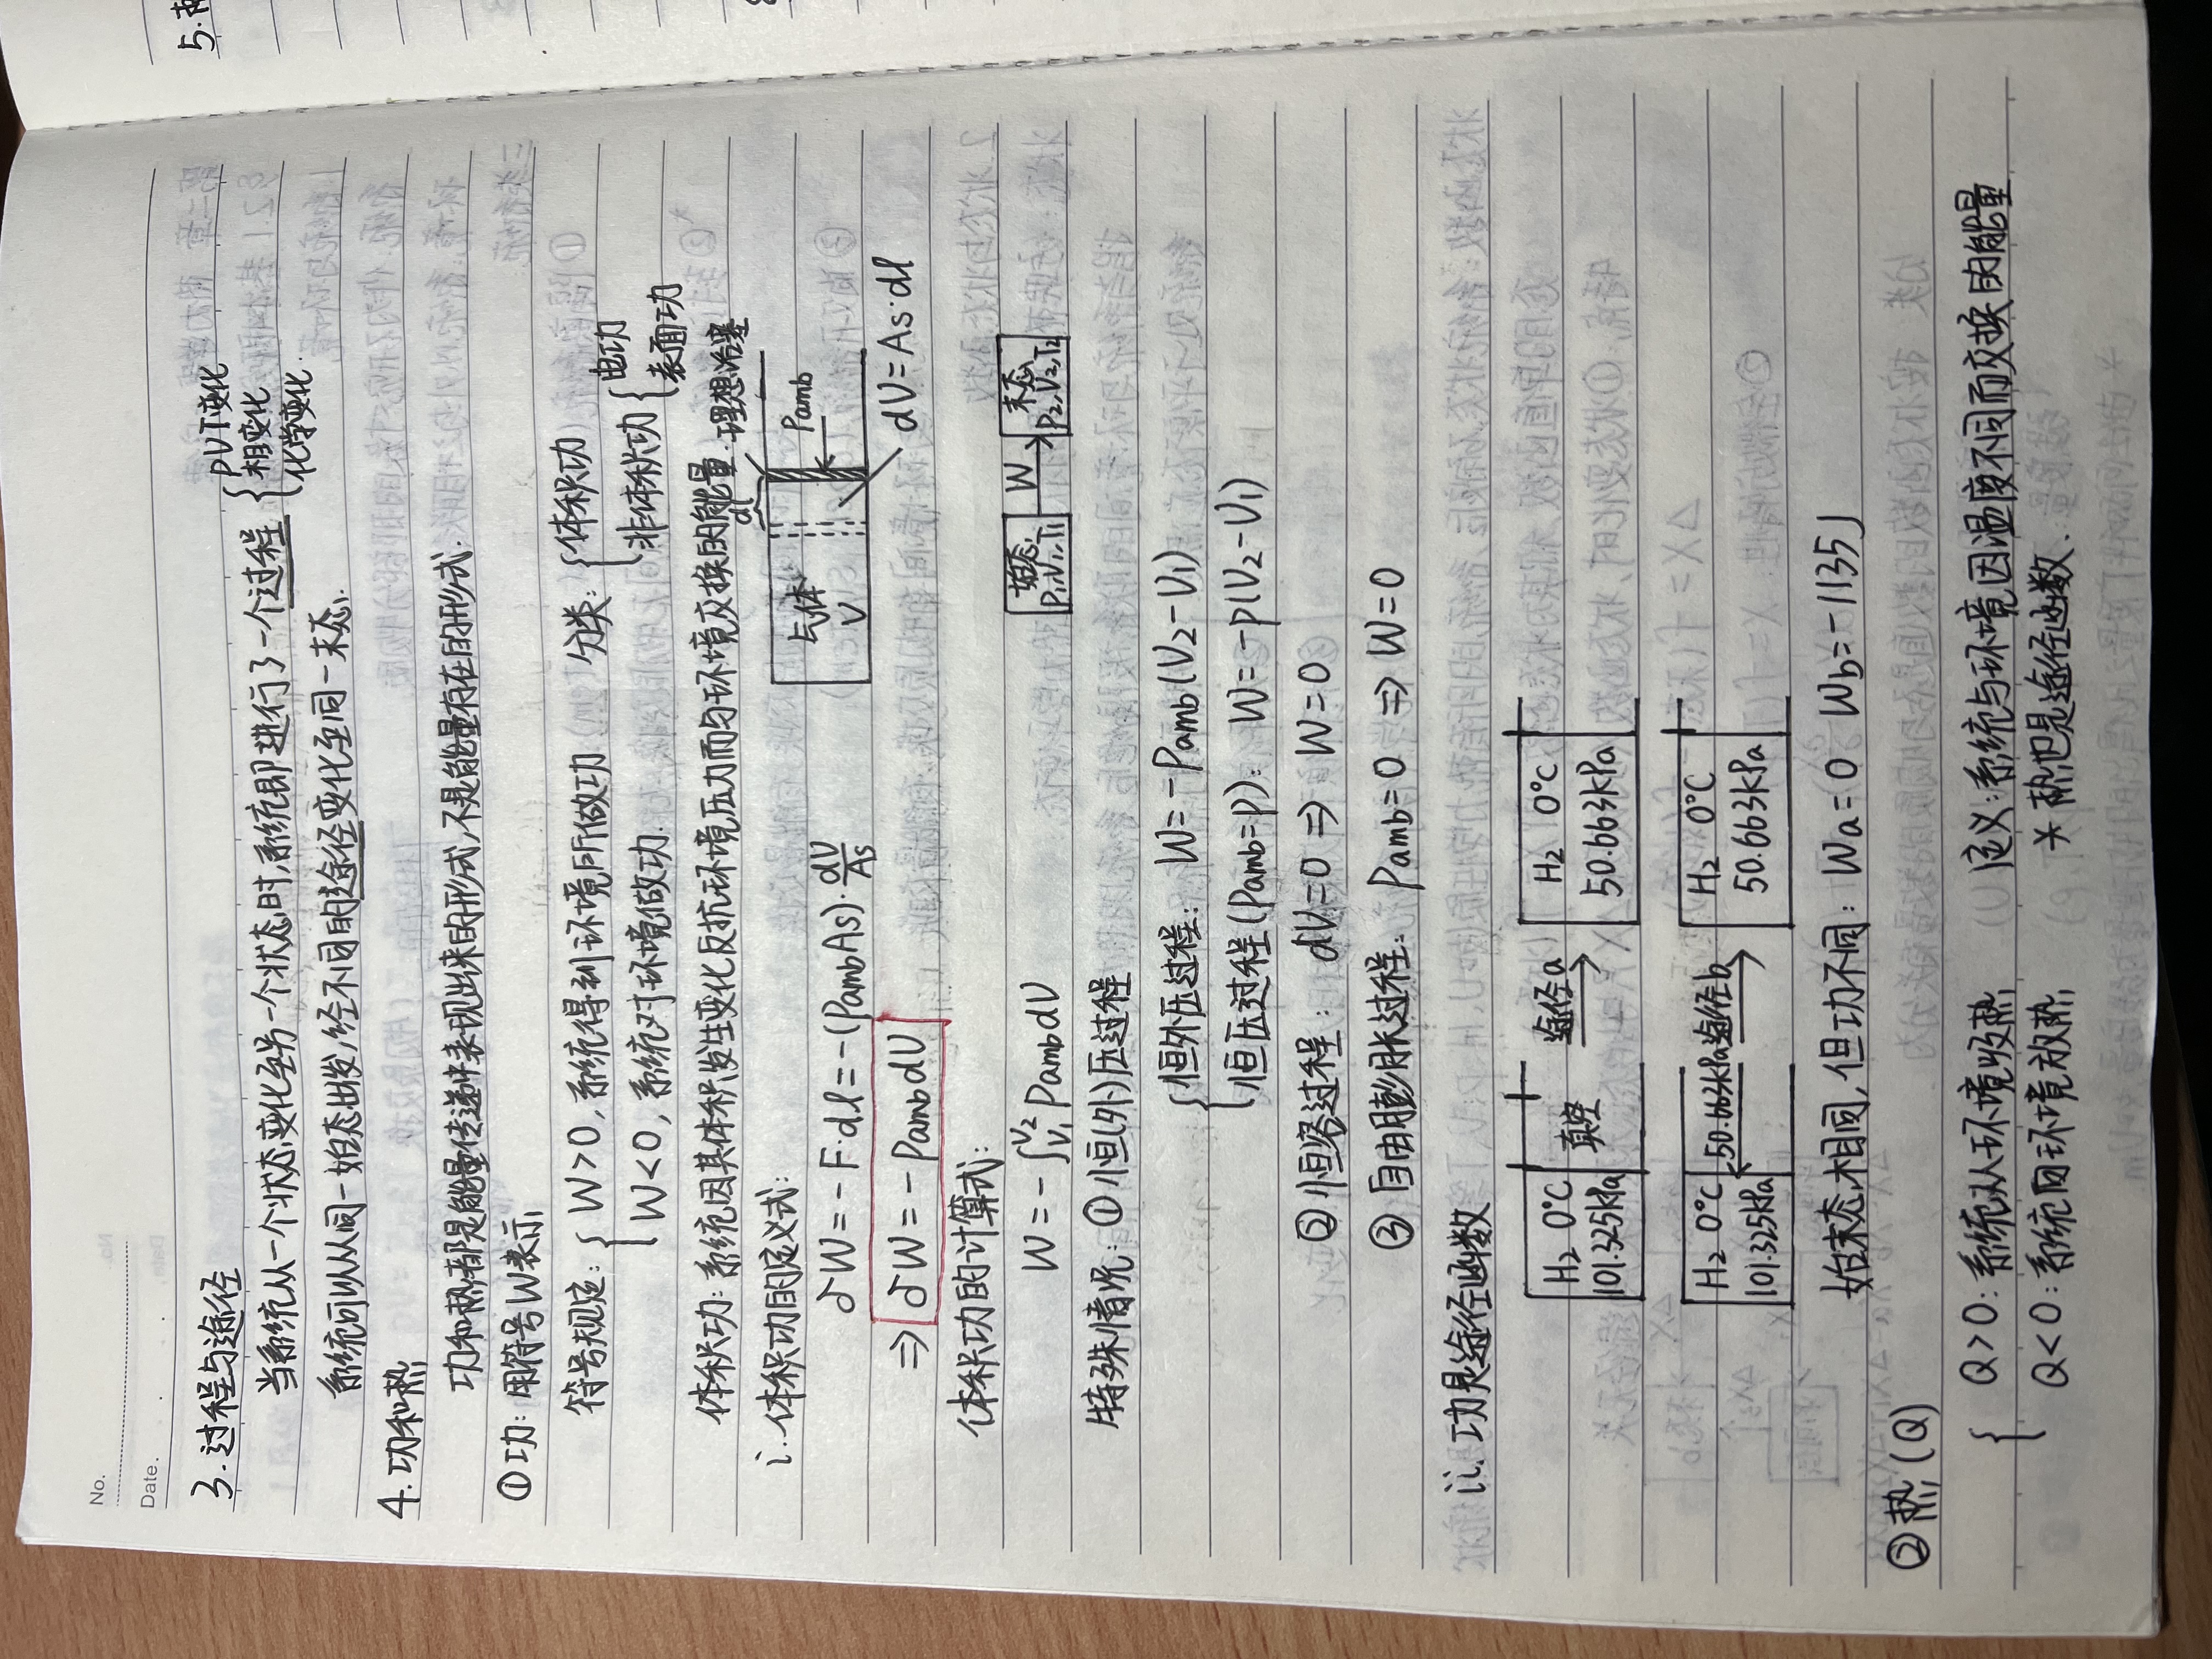 No.
Date.
3.过程与途径
当系统从一个状态变化至另一个状态时,系统即进行了一个过程 { pVT变化
相变化
化学变化.
系统可以从同一始态出发,经不同的途径变化至同一末态.
4.功和热
功和热都是能量传递中表现出来的形式,不是能量存在的形式.
①功:用符号W表示
符号规定: { W>0,系统得到环境所做功
W<0,系统对环境做功.
分类: { 体积功
非体积功 { 电功
表面功
体积功:系统因其体积发生变化反抗环境压力而与环境交换的能量.
i.体积功的定义式:
δW=-F·dl=-(pambAs)·dV/As
⇒ δW=-pambdV
dl 理想活塞
气体 V
pamb
dV=As·dl
体积功的计算式:
W=-∫V1V2 pambdV
始态 p1,V1,T1 W→ 末态 p2,V2,T2
特殊情况:①恒(外)压过程
{ 恒外压过程: W=-pamb(V2-V1)
恒压过程(pamb=p): W=-p(V2-V1)
②恒容过程: dV=0 ⇒ W=0
③自由膨胀过程: pamb=0 ⇒ W=0
ii.功是途径函数
H2 0℃ 101.325kPa 真空 途径a→ H2 0℃ 50.663kPa
H2 0℃ 101.325kPa ←50.663kPa 途径b→ H2 0℃ 50.663kPa
始末态相同,但功不同: Wa=0 Wb=-1135J
②热(Q)
{ Q>0:系统从环境吸热 定义:系统与环境因温度不同而交换的能量
Q<0:系统向环境放热 *热也是途径函数.
5.